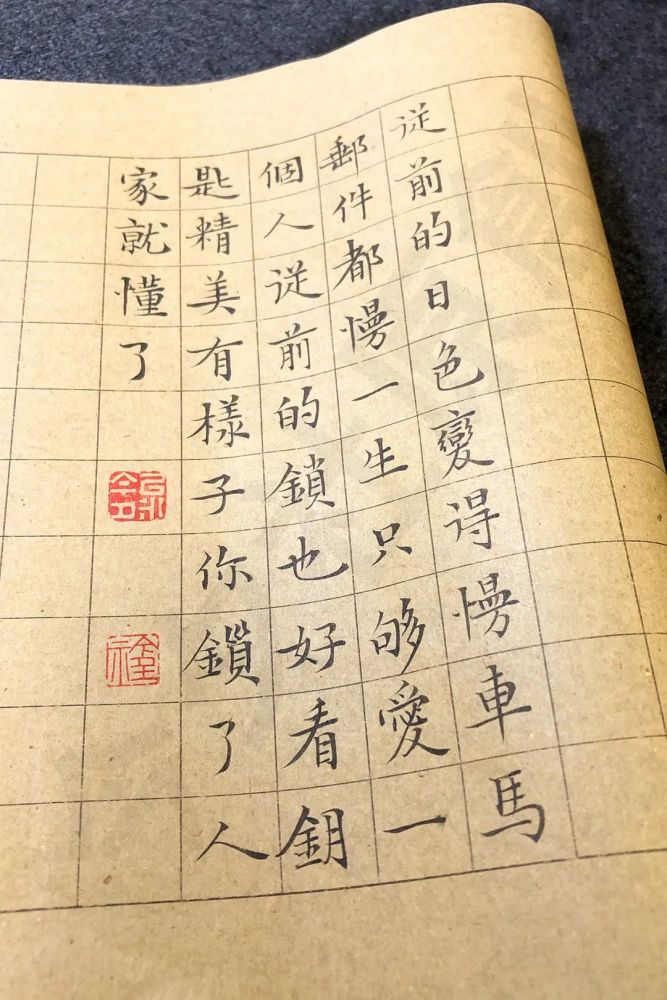 従前的日色變得慢車馬
郵件都慢一生只够愛一
個人従前的鎖也好看鈅
匙精美有樣子你鎖了人
家就懂了